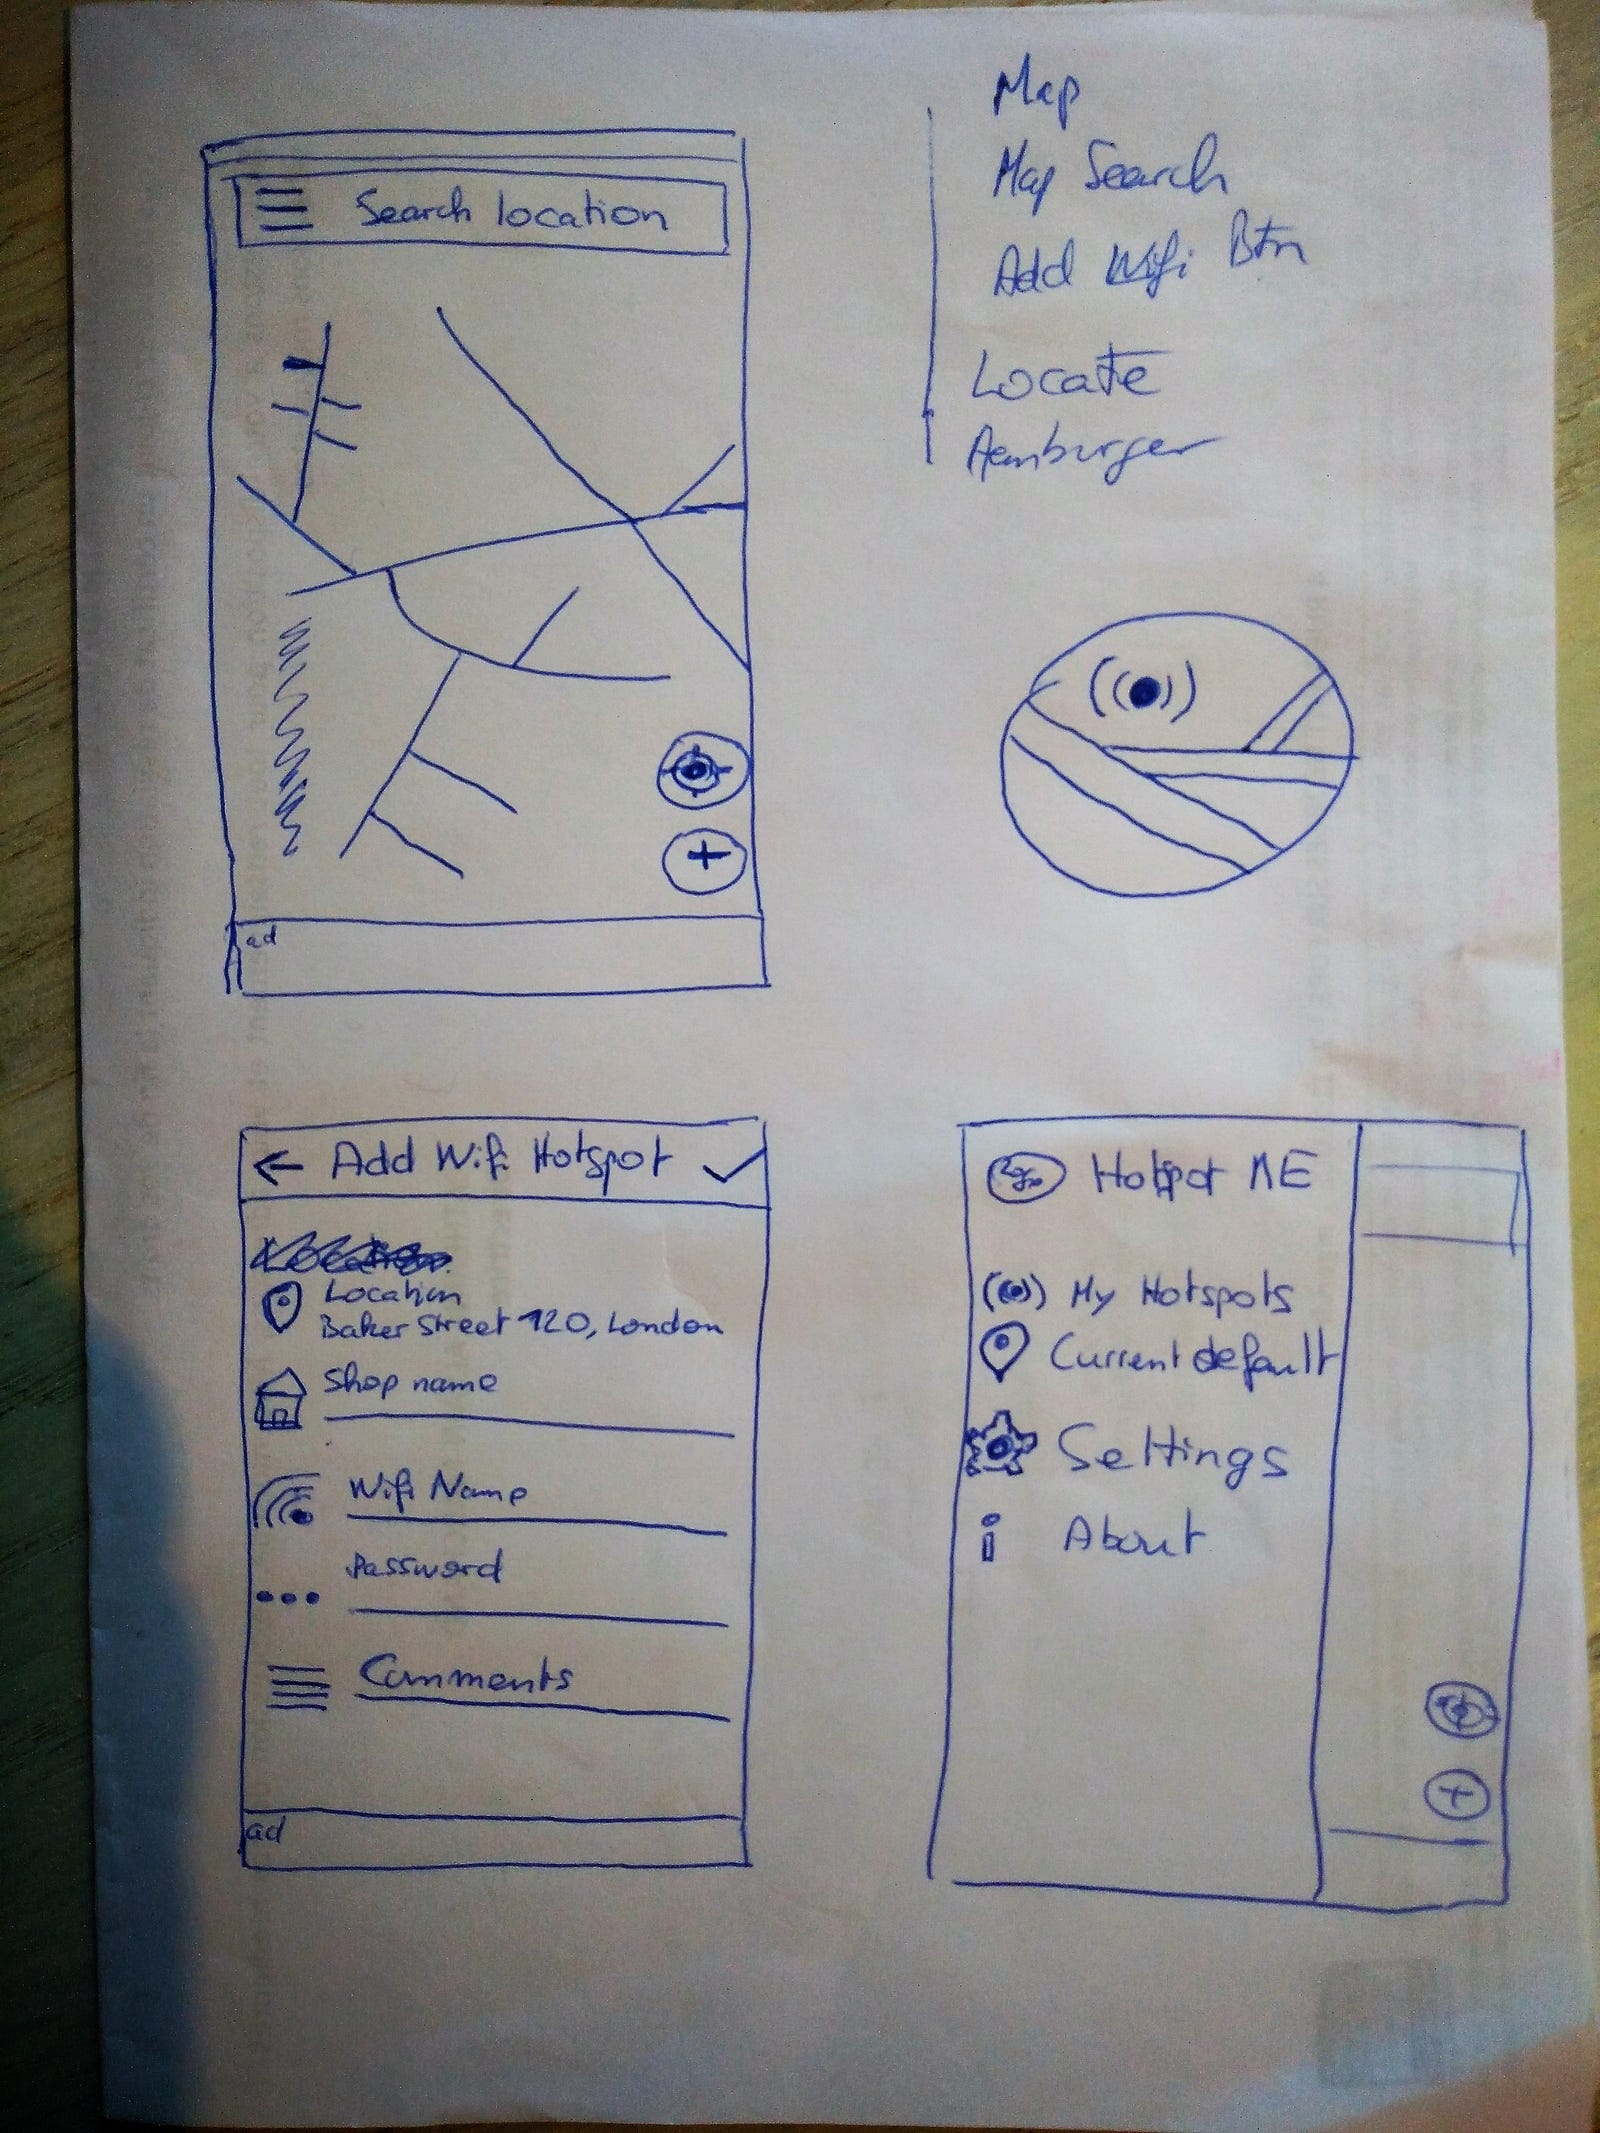 Search location
ad
Map
Map Search
Add Wifi Btn
Locate
Hamburger
Add Wifi Hotspot
Location
Baker Street 120, London
Shop name
Wifi Name
Password
Comments
ad
Hotspot ME
My Hotspots
Current default
Settings
i About